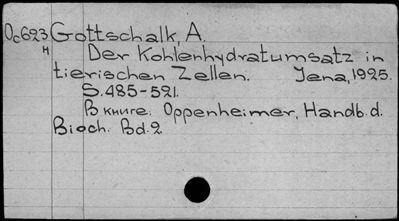 Oc623 Gottschalk, A.
н Der Kohlenhydratumsatz in
tierischen Zellen. Jena, 1925.
S. 485-521.
В книге: Oppenheimer, Handb. d.
Bioch. Bd. 2